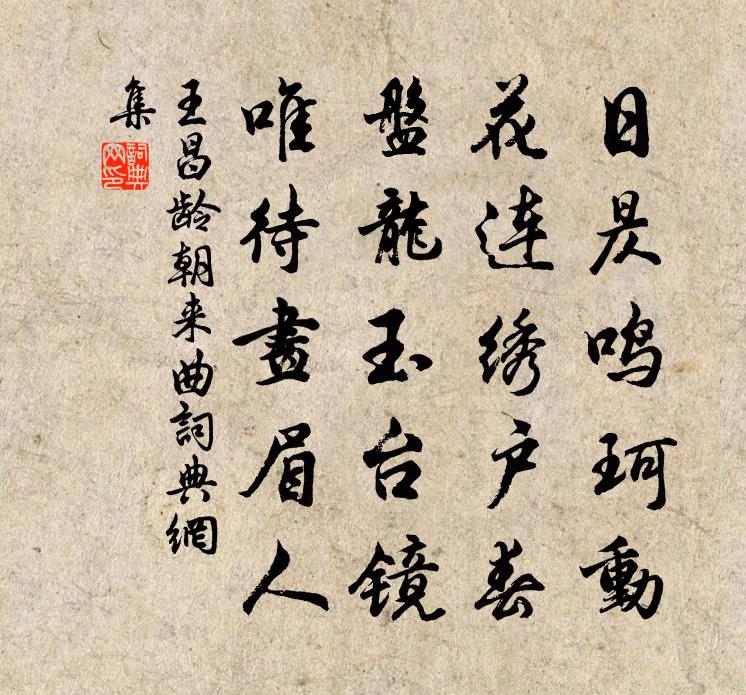 日昃鸣珂動
花连绣户春
盤龍玉台镜
唯待畫眉人
王昌龄朝来曲詞典網
集
詞典
网印